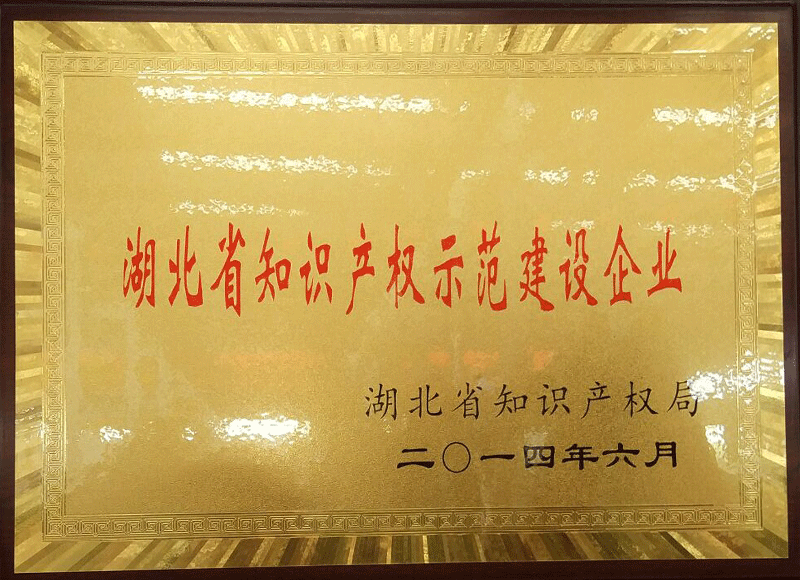 湖北省知识产权示范建设企业
湖北省知识产权局
二〇一四年六月